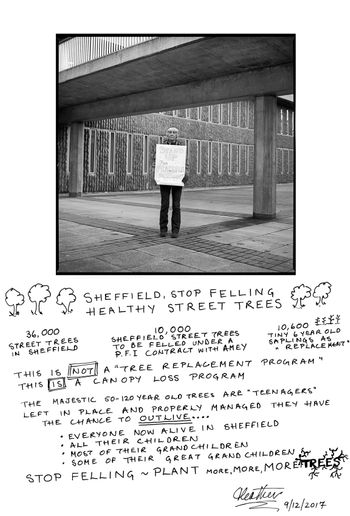 SHEFFIELD, STOP FELLING
HEALTHY STREET TREES
36,000
STREET TREES
IN SHEFFIELD
10,000
SHEFFIELD STREET TREES
TO BE FELLED UNDER A
P.F.I CONTRACT WITH AMEY
10,600
TINY 6 YEAR OLD
SAPLINGS AS
"REPLACEMENT"
THIS IS NOT A "TREE REPLACEMENT PROGRAM"
THIS IS A CANOPY LOSS PROGRAM
THE MAJESTIC 50-120 YEAR OLD TREES ARE "TEENAGERS"
LEFT IN PLACE AND PROPERLY MANAGED THEY HAVE
THE CHANCE TO OUTLIVE....
• EVERYONE NOW ALIVE IN SHEFFIELD
• ALL THEIR CHILDREN
• MOST OF THEIR GRANDCHILDREN
• SOME OF THEIR GREAT GRANDCHILDREN
STOP FELLING ~ PLANT MORE, MORE, MORE TREES
9/12/2017